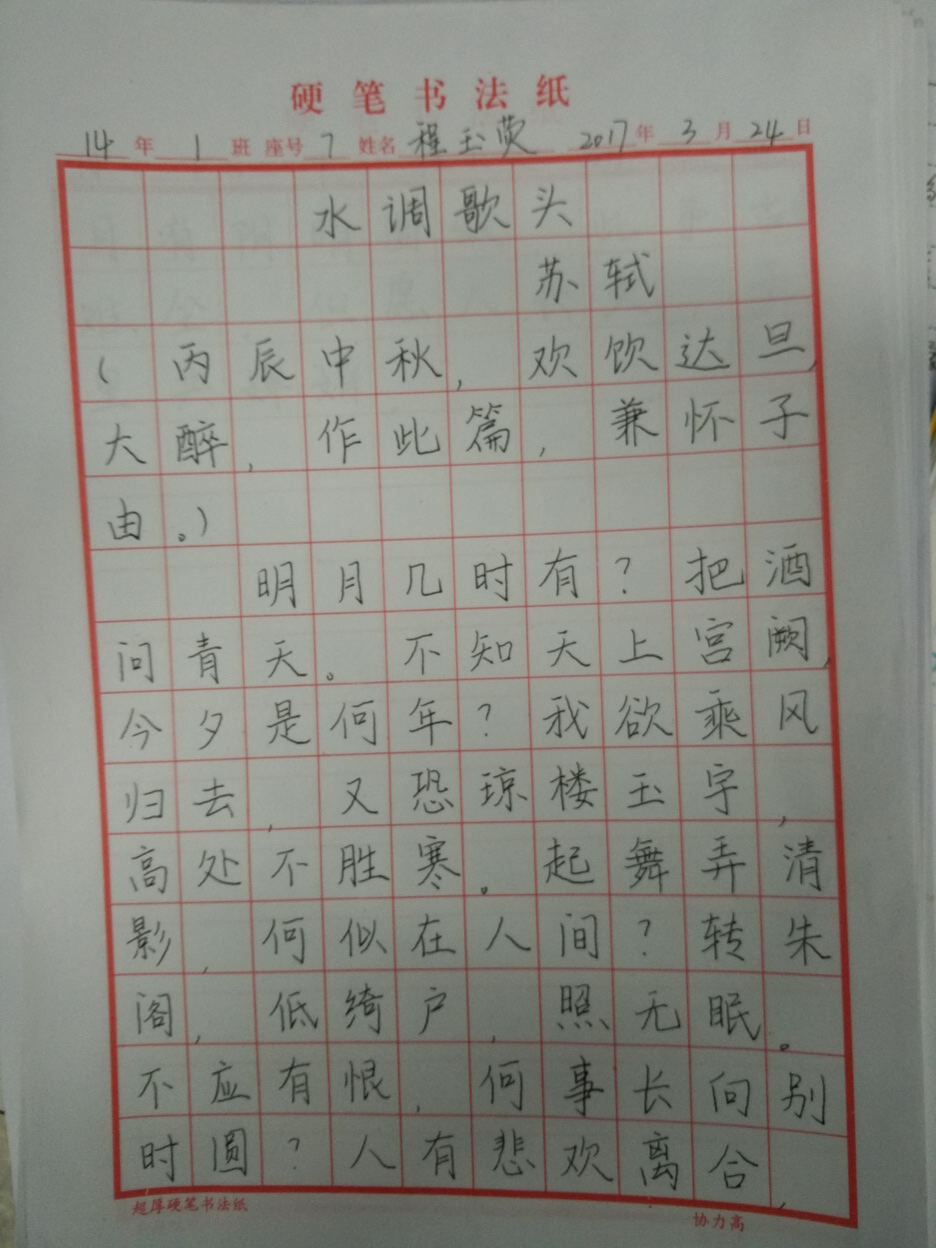 硬笔书法纸
14年1班 座号7 姓名程玉荧 2017年3月24日
水调歌头
苏轼
(丙辰中秋,欢饮达旦,
大醉,作此篇,兼怀子
由。)
明月几时有?把酒
问青天。不知天上宫阙,
今夕是何年?我欲乘风
归去,又恐琼楼玉宇,
高处不胜寒。起舞弄清
影,何似在人间?转朱
阁,低绮户,照无眠。
不应有恨,何事长向别
时圆?人有悲欢离合,
超厚硬笔书法纸
协力高